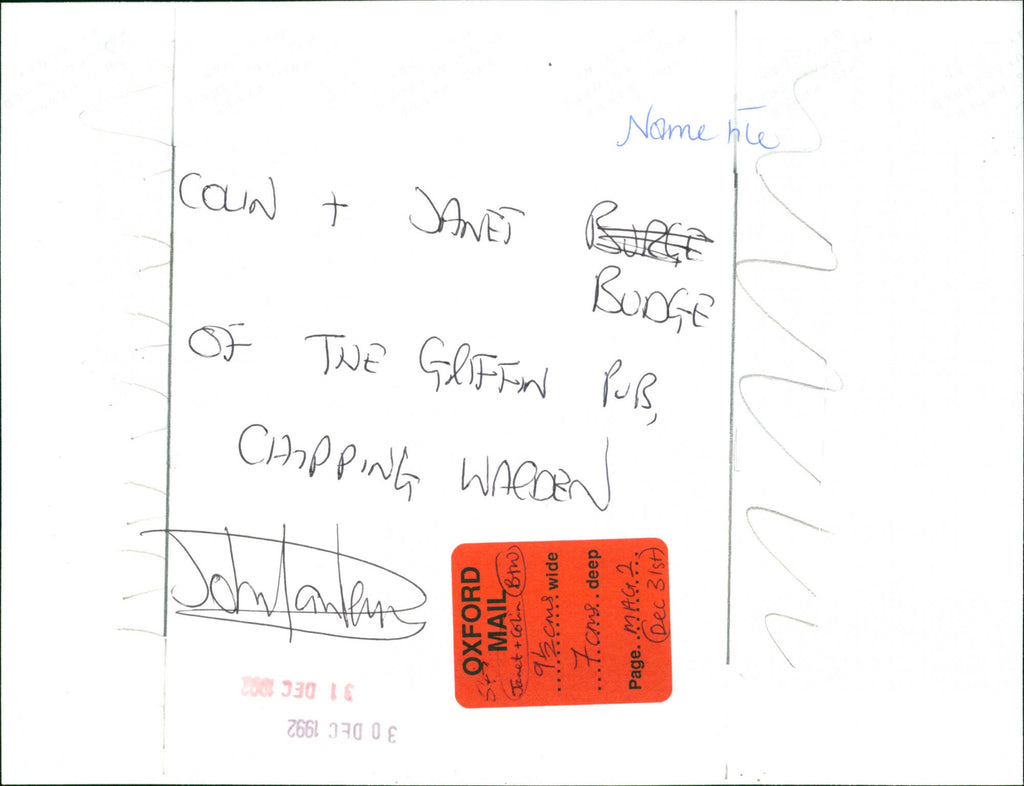 Name file
COLIN + JANET BURGE
BUDGE
OF THE GRIFFIN PUB,
CHIPPING WARDEN
OXFORD
MAIL
Janet + Colin B/W
9½ cms wide
7 cms deep
Page. MAG. 2.
(Dec 31st)
31 DEC 1992
30 DEC 1992